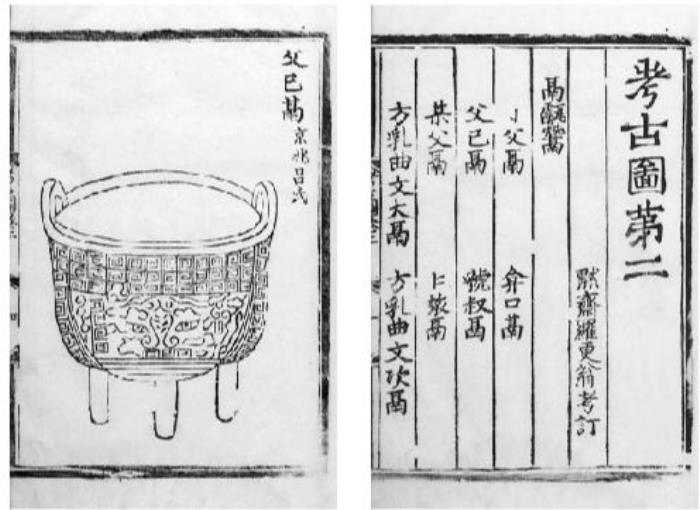 考古圖第二
默齋羅更翁考訂
鬲甗鬵
父鬲 弇口鬲
父已鬲 虢叔鬲
某父鬲 鬲
方乳曲文大鬲 方乳曲文次鬲
父已鬲 京兆呂氏